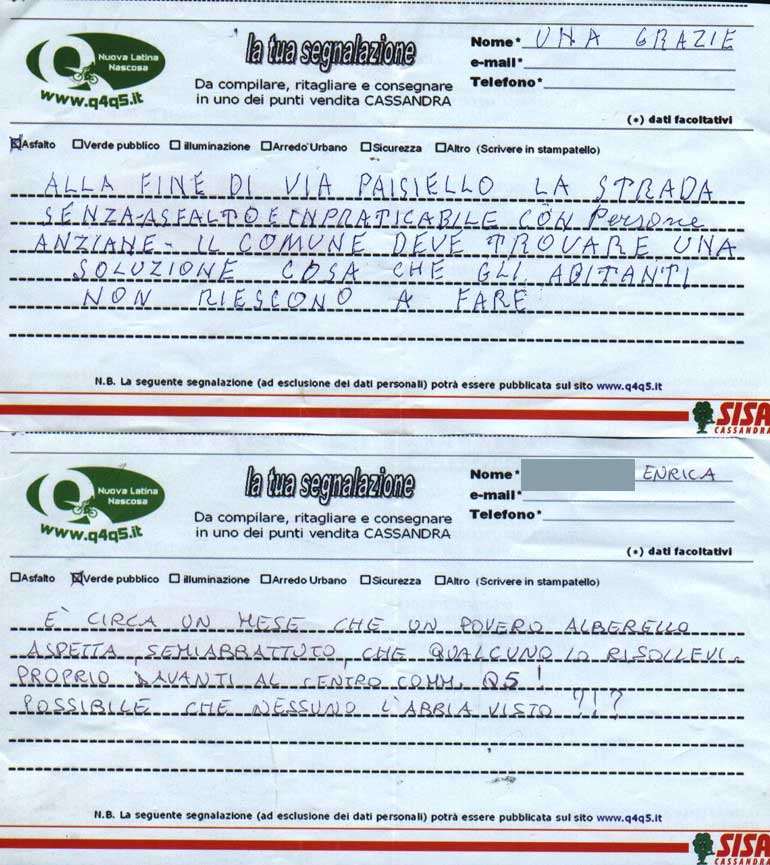 Nuova Latina
Nascosa
www.q4q5.it
la tua segnalazione
Da compilare, ritagliare e consegnare
in uno dei punti vendita CASSANDRA
Nome* UNA GRAZIE
e-mail*
Telefono*
(*) dati facoltativi
Asfalto Verde pubblico illuminazione Arredo Urbano Sicurezza Altro (Scrivere in stampatello)
ALLA FINE DI VIA PAISIELLO LA STRADA
SENZA-ASFALTO E INPRATICABILE CON Persone
ANZIANE- IL COMUNE DEVE TROVARE UNA
SOLUZIONE COSA CHE GLI ABITANTI
NON RIESCONO A FARE
N.B. La seguente segnalazione (ad esclusione dei dati personali) potrà essere pubblicata sul sito www.q4q5.it
SISA
CASSANDRA
Nuova Latina
Nascosa
www.q4q5.it
la tua segnalazione
Da compilare, ritagliare e consegnare
in uno dei punti vendita CASSANDRA
Nome* ENRICA
e-mail*
Telefono*
(*) dati facoltativi
Asfalto Verde pubblico illuminazione Arredo Urbano Sicurezza Altro (Scrivere in stampatello)
È CIRCA UN MESE CHE UN POVERO ALBERELLO
ASPETTA, SEMIABBATTUTO, CHE QUALCUNO LO RISOLLEVI.
PROPRIO DAVANTI AL CENTRO COMM. Q5!
POSSIBILE CHE NESSUNO L'ABBIA VISTO ?!?
N.B. La seguente segnalazione (ad esclusione dei dati personali) potrà essere pubblicata sul sito www.q4q5.it
SISA
CASSANDRA